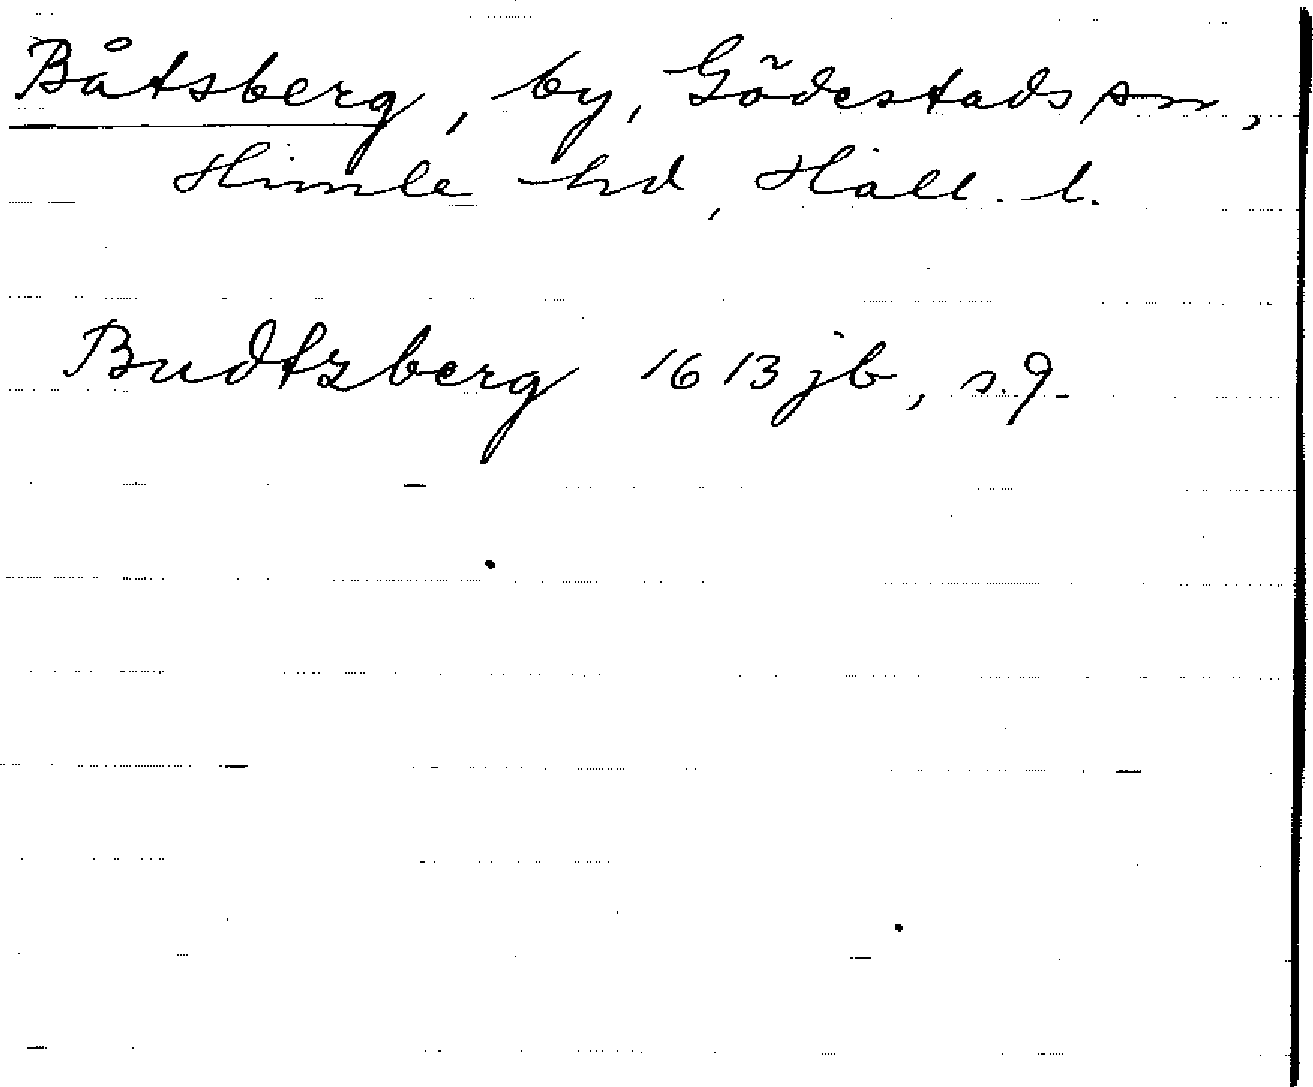 Båtsberg, by, Gödestads sn,
Himle hd, Hall. l.
Budtzberg 1613 jb, s. 9.